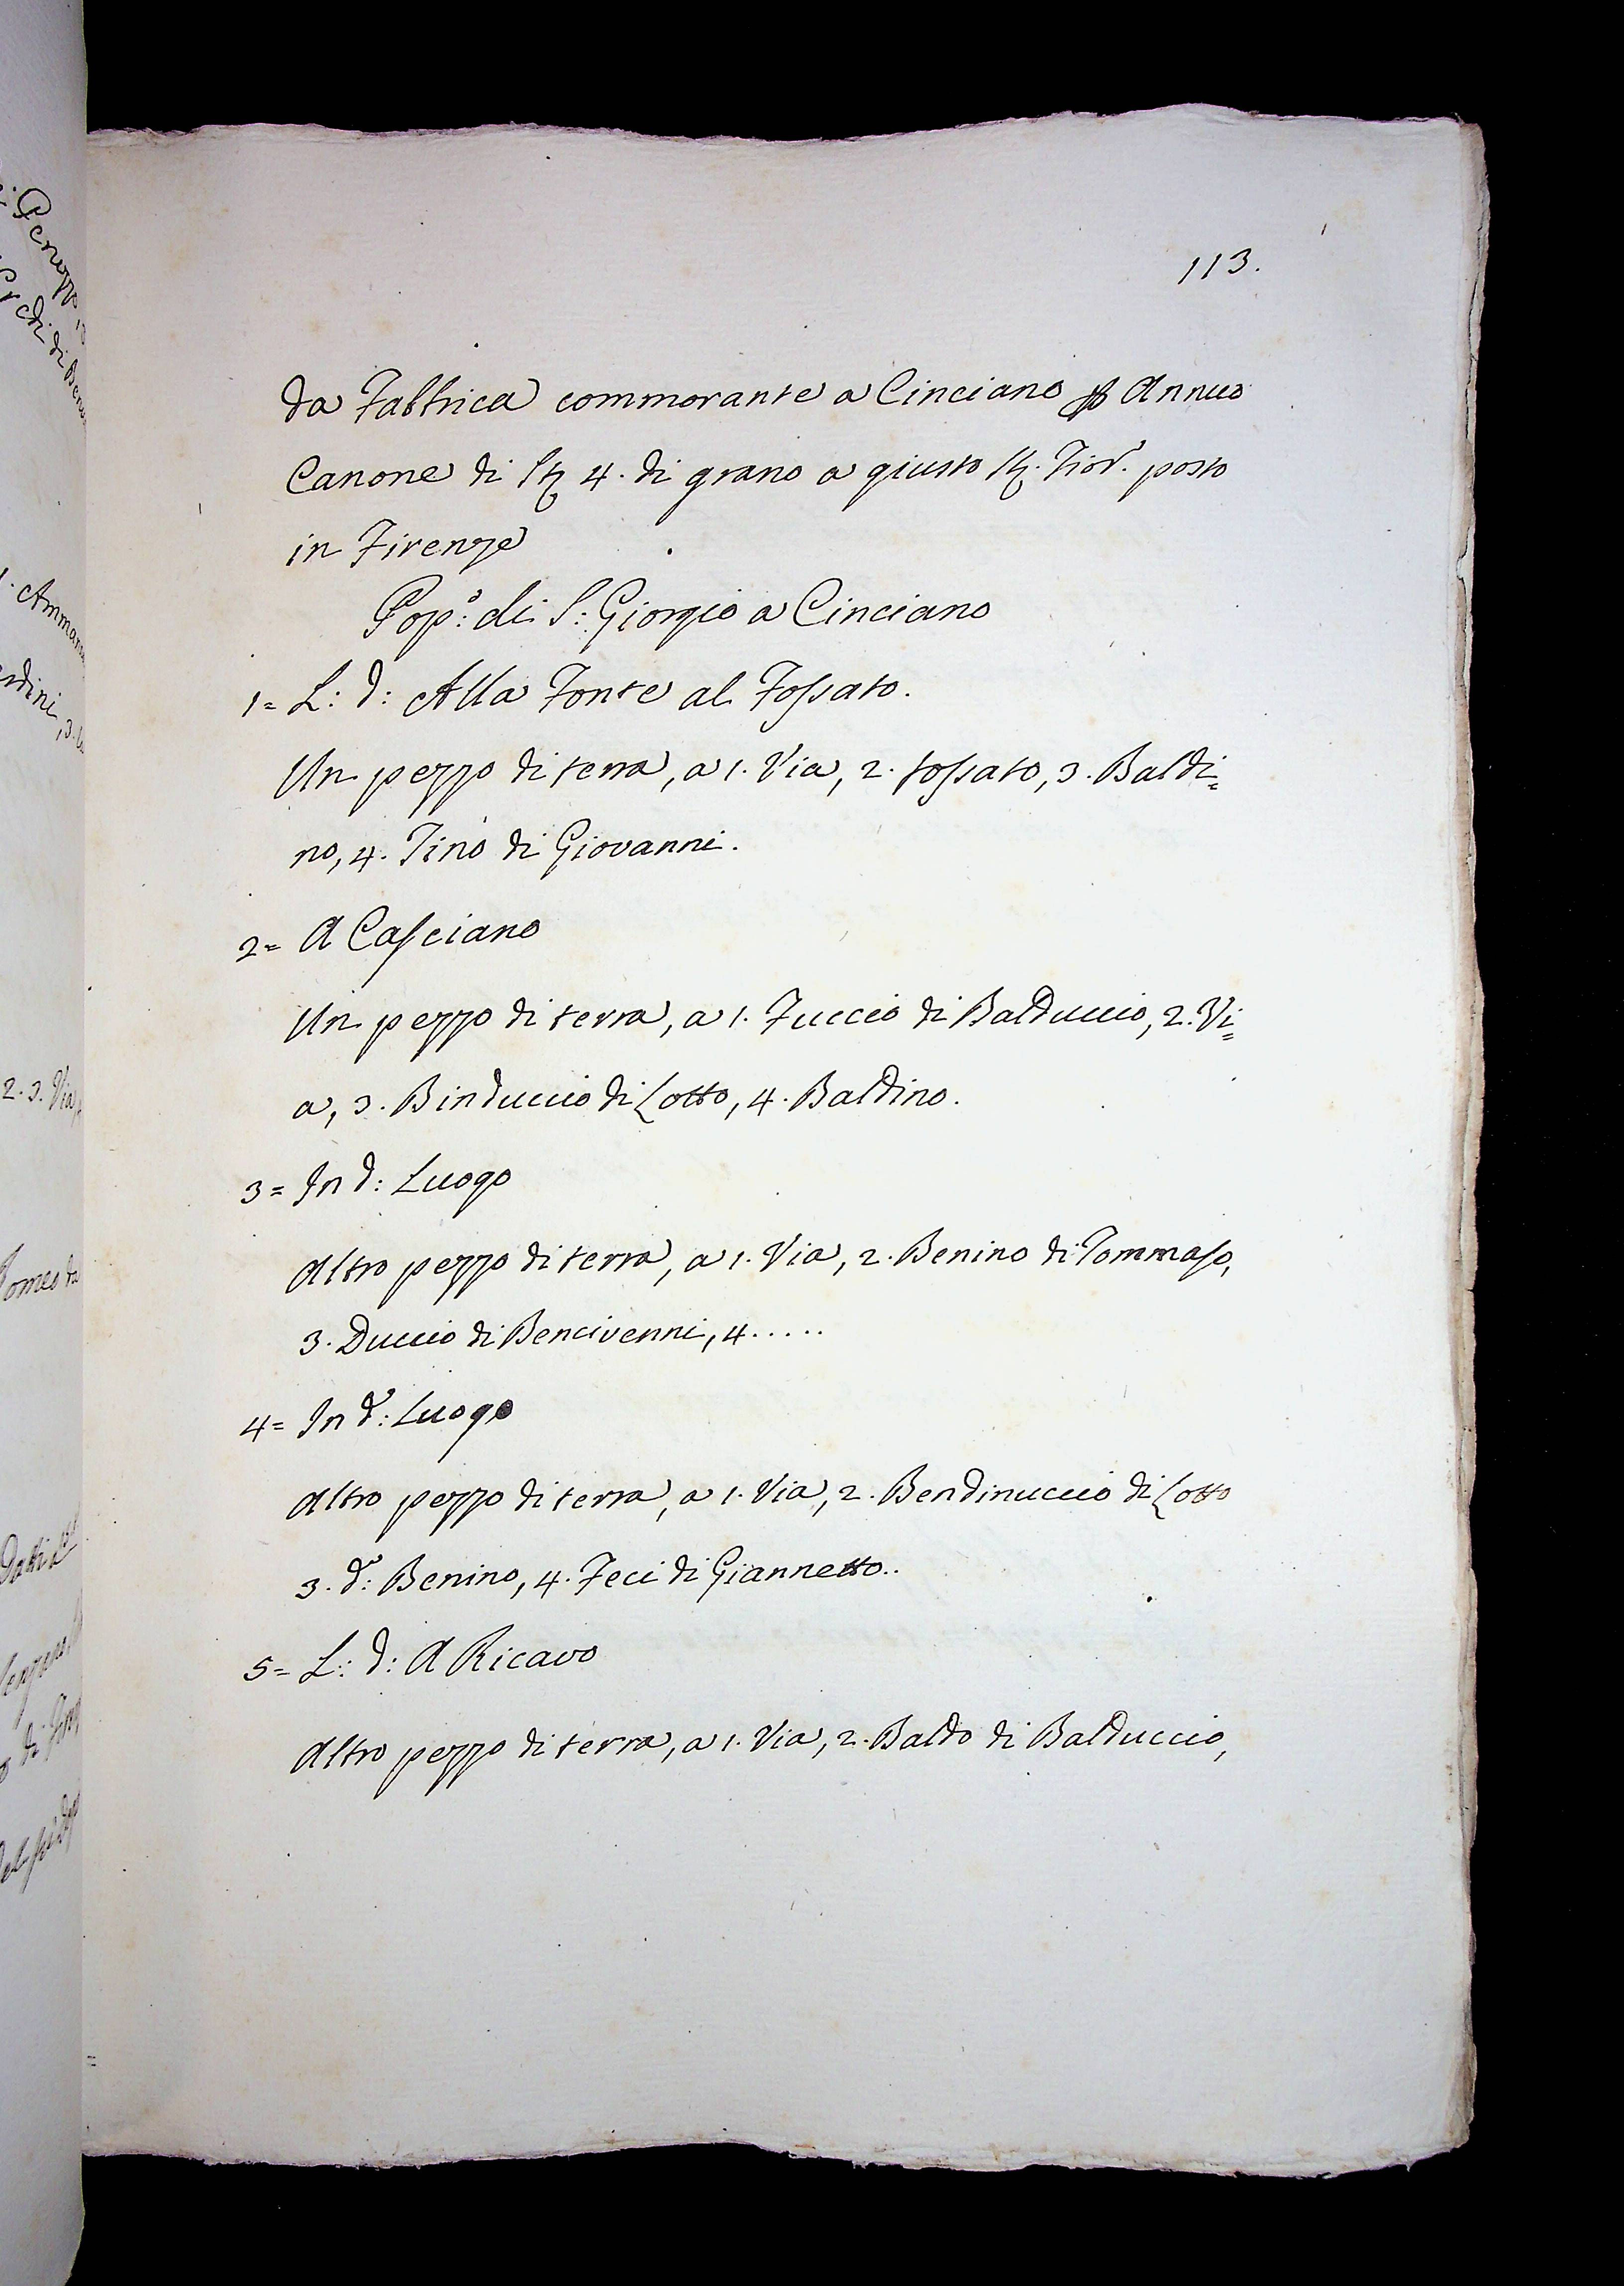 113.
da Fabbrica commorante a Cinciano p Annuo
Canone di St 4. di grano a giusto St. Fior. posto
in Firenze
Pop.º: di S: Giorgio a Cinciano
1= L: d: Alla Fonte al Fossato.
Un pezzo di terra, a 1. Via, 2. fossato, 3. Baldi=
no, 4. Tino di Giovanni.
2= A Casciano
Un pezzo di terra, a 1. Fuccio di Balduccio, 2. Vi=
a, 3. Binduccio di Lotto, 4. Baldino.
3= In d: Luogo
Altro pezzo di terra, a 1. Via, 2. Benino di Tommaso,
3. Duccio di Bencivenni, 4.....
4= In d: Luogo
Altro pezzo di terra, a 1. Via, 2. Bendinuccio di Lotto
3. d: Benino, 4. Feci di Giannetto..
5= L: d: A Ricavo
Altro pezzo di terra, a 1. Via, 2. Baldo di Balduccio,